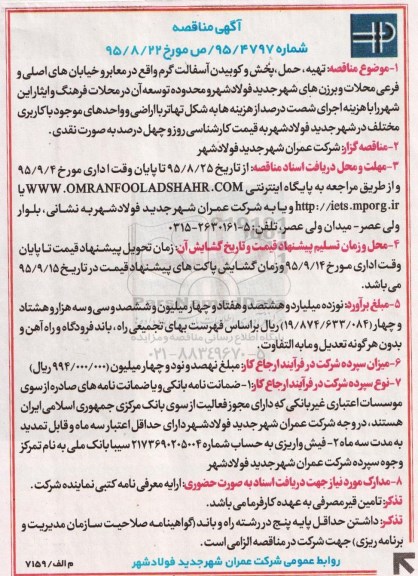 آگهی مناقصه
شماره ۹۵/۴۷۹۷/ص مورخ ۹۵/۸/۲۲
۱-موضوع مناقصه: تهیه، حمل، پخش و کوبیدن آسفالت گرم واقع در معابر و خیابان های اصلی و
فرعی محلات و برزن های شهر جدید فولادشهر و محدوده توسعه آن در محلات فرهنگ و ایثار این
شهر را با هزینه اجرای شصت درصد از هزینه ها به شکل تهاتر با اراضی و واحدهای موجود با کاربری
مختلف در شهر جدید فولادشهر به قیمت کارشناسی روز و چهل درصد به صورت نقدی.
۲-مناقصه گزار: شرکت عمران شهر جدید فولادشهر
۳-مهلت و محل دریافت اسناد مناقصه: از تاریخ ۹۵/۸/۲۵ تا پایان وقت اداری مورخ ۹۵/۹/۴
و از طریق مراجعه به پایگاه اینترنتی WWW.OMRANFOOLADSHAHR.COM یا
http://iets.mporg.ir و یا به شرکت عمران شهر جدید فولادشهر به نشانی، بلوار
ولی عصر- میدان ولی عصر. تلفن: ۵-۲۶۳۰۱۶۱-۰۳۱۵
۴-محل و زمان تسلیم پیشنهاد قیمت و تاریخ گشایش آن: زمان تحویل پیشنهاد قیمت تا پایان
وقت اداری مورخ ۹۵/۹/۱۴ و زمان گشایش پاکت های پیشنهاد قیمت در تاریخ ۹۵/۹/۱۵
می باشد.
۵-مبلغ برآورد: نوزده میلیارد و هشتصد و هفتاد و چهار میلیون و ششصد و سی و سه هزار و هشتاد
و چهار (۱۹/۸۷۴/۶۳۳/۰۸۴) ریال براساس فهرست بهای تجمیعی راه، باند فرودگاه و راه آهن و
بدون هرگونه تعدیل و مابه التفاوت.
۶-میزان سپرده شرکت در فرآیند ارجاع کار: مبلغ نهصد و نود و چهار میلیون (۹۹۴/۰۰۰/۰۰۰) ریال
۷-نوع سپرده شرکت در فرآیند ارجاع کار: ۱-ضمانت نامه بانکی و یا ضمانت نامه های صادره از سوی
موسسات اعتباری غیربانکی که دارای مجوز فعالیت از سوی بانک مرکزی جمهوری اسلامی ایران
هستند، در وجه شرکت عمران شهر جدید فولادشهر دارای حداقل اعتبار سه ماه و قابل تمدید
به مدت سه ماه ۲-فیش واریزی به حساب شماره ۲۱۷۳۶۹۰۲۰۵۰۰۴ سیبا بانک ملی به نام تمرکز
وجوه سپرده شرکت عمران شهر جدید فولادشهر
۸-مدارک مورد نیاز جهت دریافت اسناد به صورت حضوری: ارایه معرفی نامه کتبی نماینده شرکت.
تذکر: تامین قیر مصرفی به عهده کارفرما می باشد.
تذکر: داشتن حداقل پایه پنج در رشته راه و باند (گواهینامه صلاحیت سازمان مدیریت و
برنامه ریزی) جهت شرکت در مناقصه الزامی است.
روابط عمومی شرکت عمران شهر جدید فولادشهر
م الف/۷۱۵۹
پایگاه اطلاع رسانی مناقصه و مزایده
۰۲۱-۸۸۳۴۹۶۷۰-۵